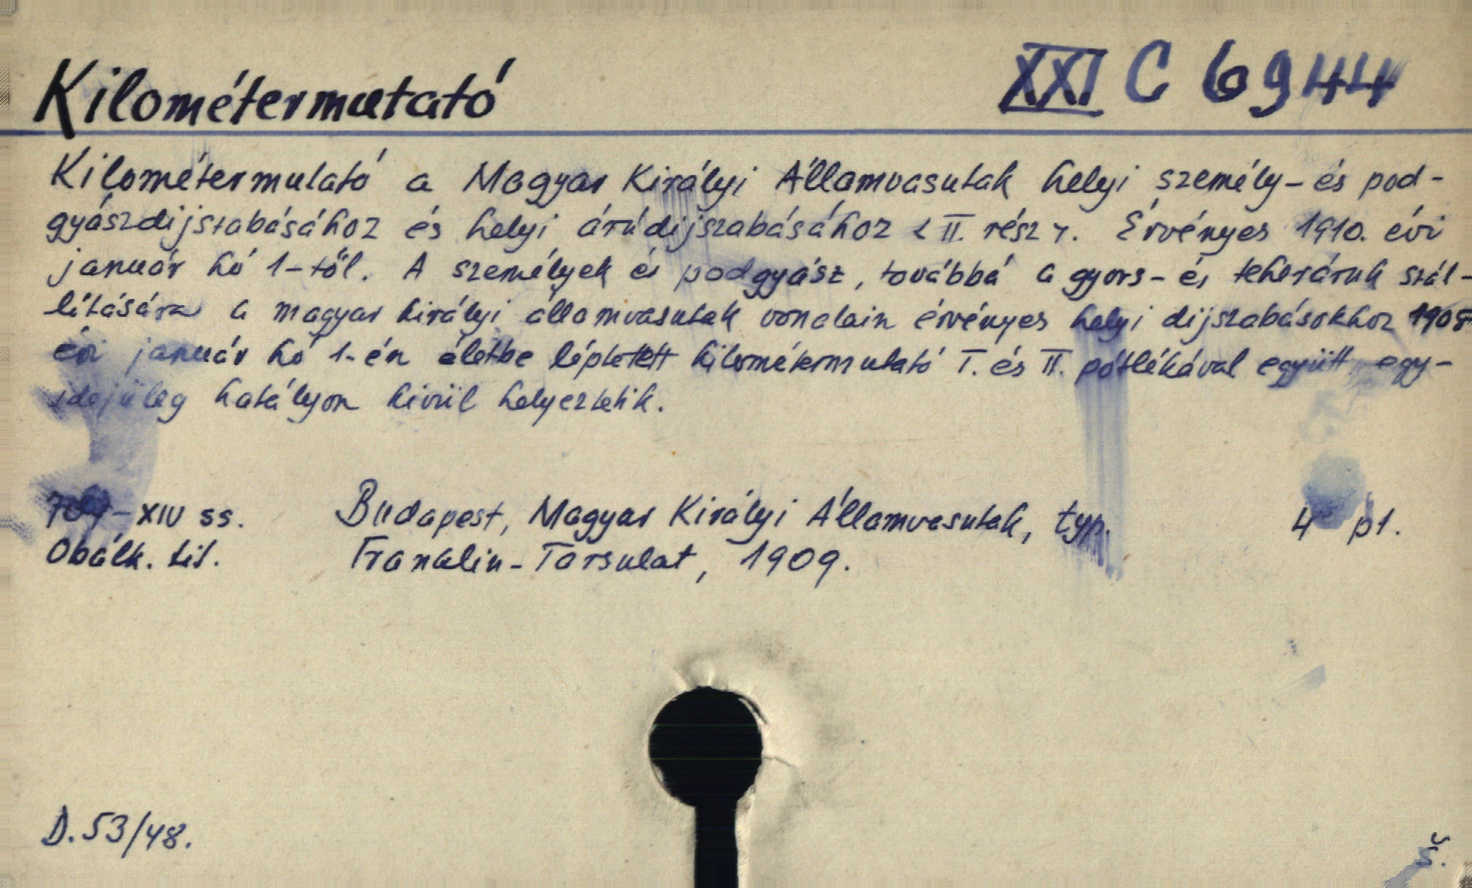 Kilométermutató
XXI C 6944
Kilométermutató a Magyar Királyi Államvasutak helyi személy- és pod-
gyászdijszabásához és helyi árúdijszabásához < II. rész >. Érvényes 1910. évi
január hó 1-től. A személyek és podgyász, továbbá a gyors- és teheráruk szál-
lítására a magyar királyi államvasutak vonalain érvényes helyi dijszabásokhoz 1908
évi január hó 1-én életbe léptetett kilométermutató I. és II. pótlékával együtt egy-
idejüleg hatályon kivül helyeztetik.
-XIV ss. Budapest, Magyar Királyi Államvasutak, typ. 4° pl.
Obálk. tit. Franklin-Tarsulat, 1909.
D. 53/48.
Š.